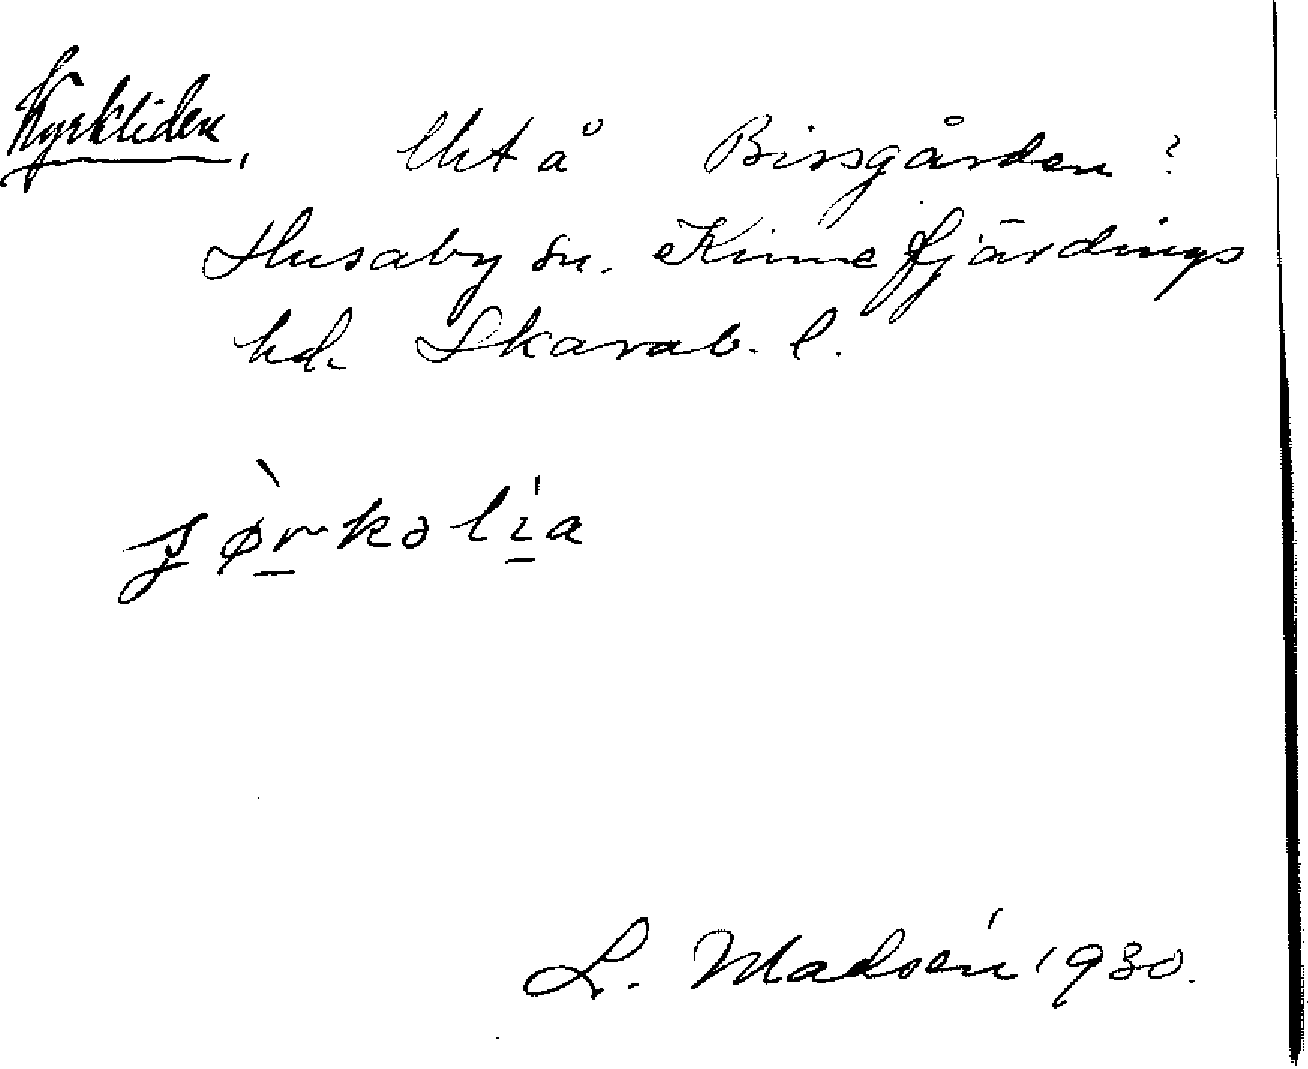 Kyrkliden, Utå Bissgården?
Husaby sn. Kinnefjärdings
hd. Skarab. l.
ʃø̀rkəlía
L. Madsén 1930.